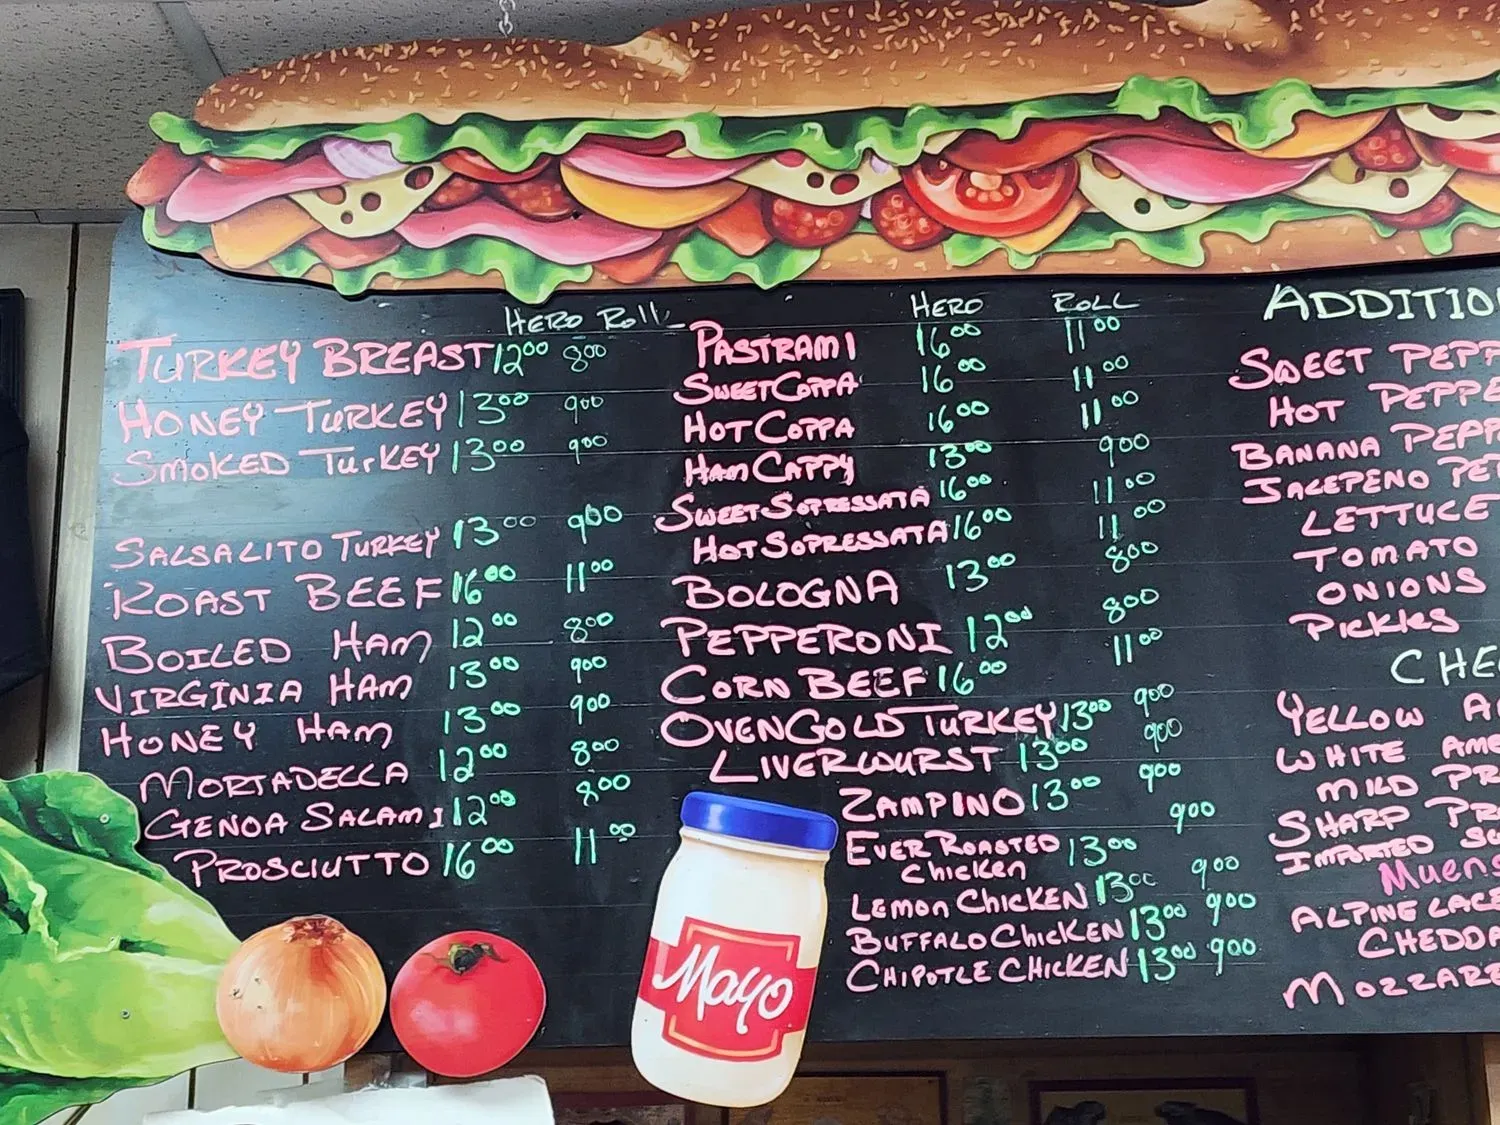 HERO ROLL
TURKEY BREAST 12⁰⁰ 8⁰⁰
HONEY TURKEY 13⁰⁰ 9⁰⁰
SMOKED TURKEY 13⁰⁰ 9⁰⁰
SALSALITO TURKEY 13⁰⁰ 9⁰⁰
ROAST BEEF 16⁰⁰ 11⁰⁰
BOILED HAM 12⁰⁰ 8⁰⁰
VIRGINIA HAM 13⁰⁰ 9⁰⁰
HONEY HAM 13⁰⁰ 9⁰⁰
MORTADELLA 12⁰⁰ 8⁰⁰
GENOA SALAMI 12⁰⁰ 8⁰⁰
PROSCIUTTO 16⁰⁰ 11⁰⁰
HERO ROLL
PASTRAMI 16⁰⁰ 11⁰⁰
SWEET COPPA 16⁰⁰ 11⁰⁰
HOT COPPA 16⁰⁰ 11⁰⁰
HAM CAPPY 13⁰⁰ 9⁰⁰
SWEET SOPRESSATA 16⁰⁰ 11⁰⁰
HOT SOPRESSATA 16⁰⁰ 11⁰⁰
BOLOGNA 13⁰⁰ 8⁰⁰
PEPPERONI 12⁰⁰ 8⁰⁰
CORN BEEF 16⁰⁰ 11⁰⁰
OVENGOLD TURKEY 13⁰⁰ 9⁰⁰
LIVERWURST 13⁰⁰ 9⁰⁰
ZAMPINO 13⁰⁰ 9⁰⁰
EVER ROASTED
CHICKEN 13⁰⁰ 9⁰⁰
LEMON CHICKEN 13⁰⁰ 9⁰⁰
BUFFALO CHICKEN 13⁰⁰ 9⁰⁰
CHIPOTLE CHICKEN 13⁰⁰ 9⁰⁰
Mayo
ADDITIO
SWEET PEPP
HOT PEPPE
BANANA PEPP
JALEPENO PE
LETTUCE
TOMATO
ONIONS
PICKLES
CHE
YELLOW A
WHITE AME
MILD PR
SHARP PR
IMPORTED S
Muens
ALPINE LACE
CHEDDA
MOZZARE